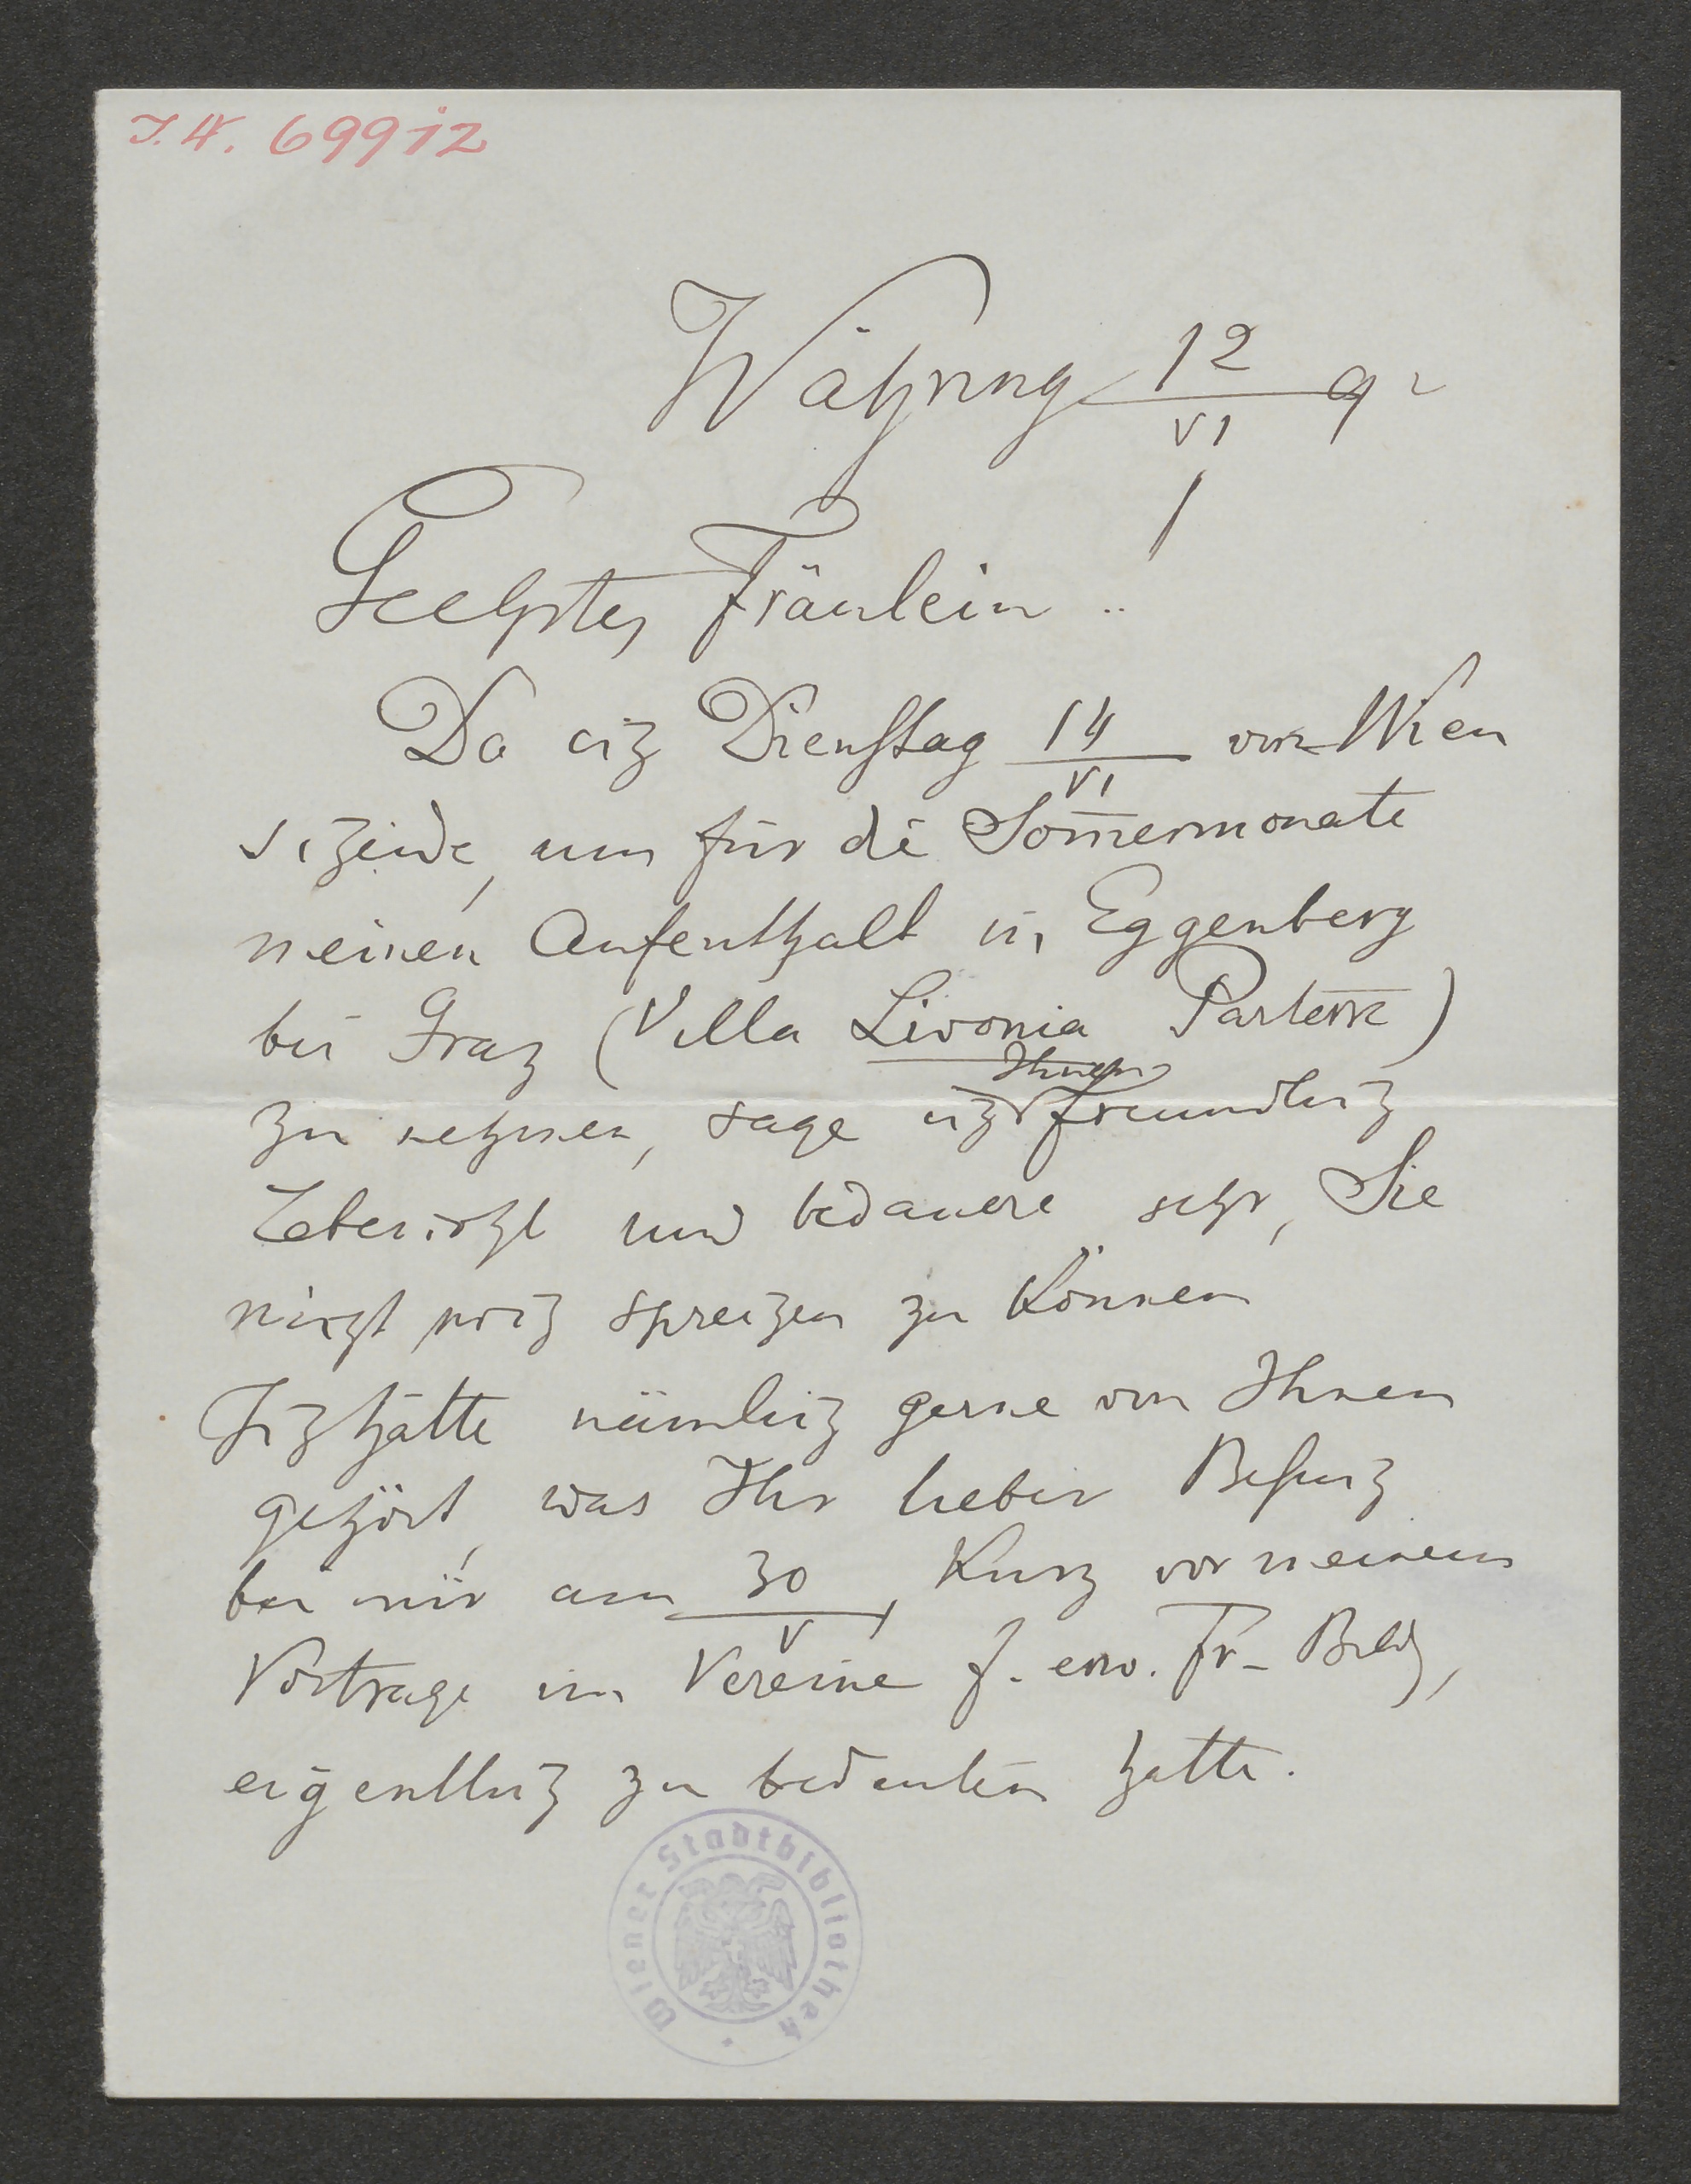 J.N. 69912
Währing 12/VI 92
Geehrtes Fräulein!
Da ich Dienstag 14/VI von Wien
scheide, um für die Som̅ermonate
meinen Aufenthalt in Eggenberg
bei Graz (Villa Livonia Parterre)
zu nehmen, sage ich Ihnen freundlich
Lebewohl und bedauere sehr, Sie
nicht noch sprechen zu können
Ich hätte nämlich gerne von Ihnen
gehört, was Ihr lieber Besuch
bei mir am 30/V, kurz vor meinem
Vortrage im Vereine f. erw. Fr. Bildg,
eigentlich zu bedeuten hatte.
Wiener Stadtbibliothek